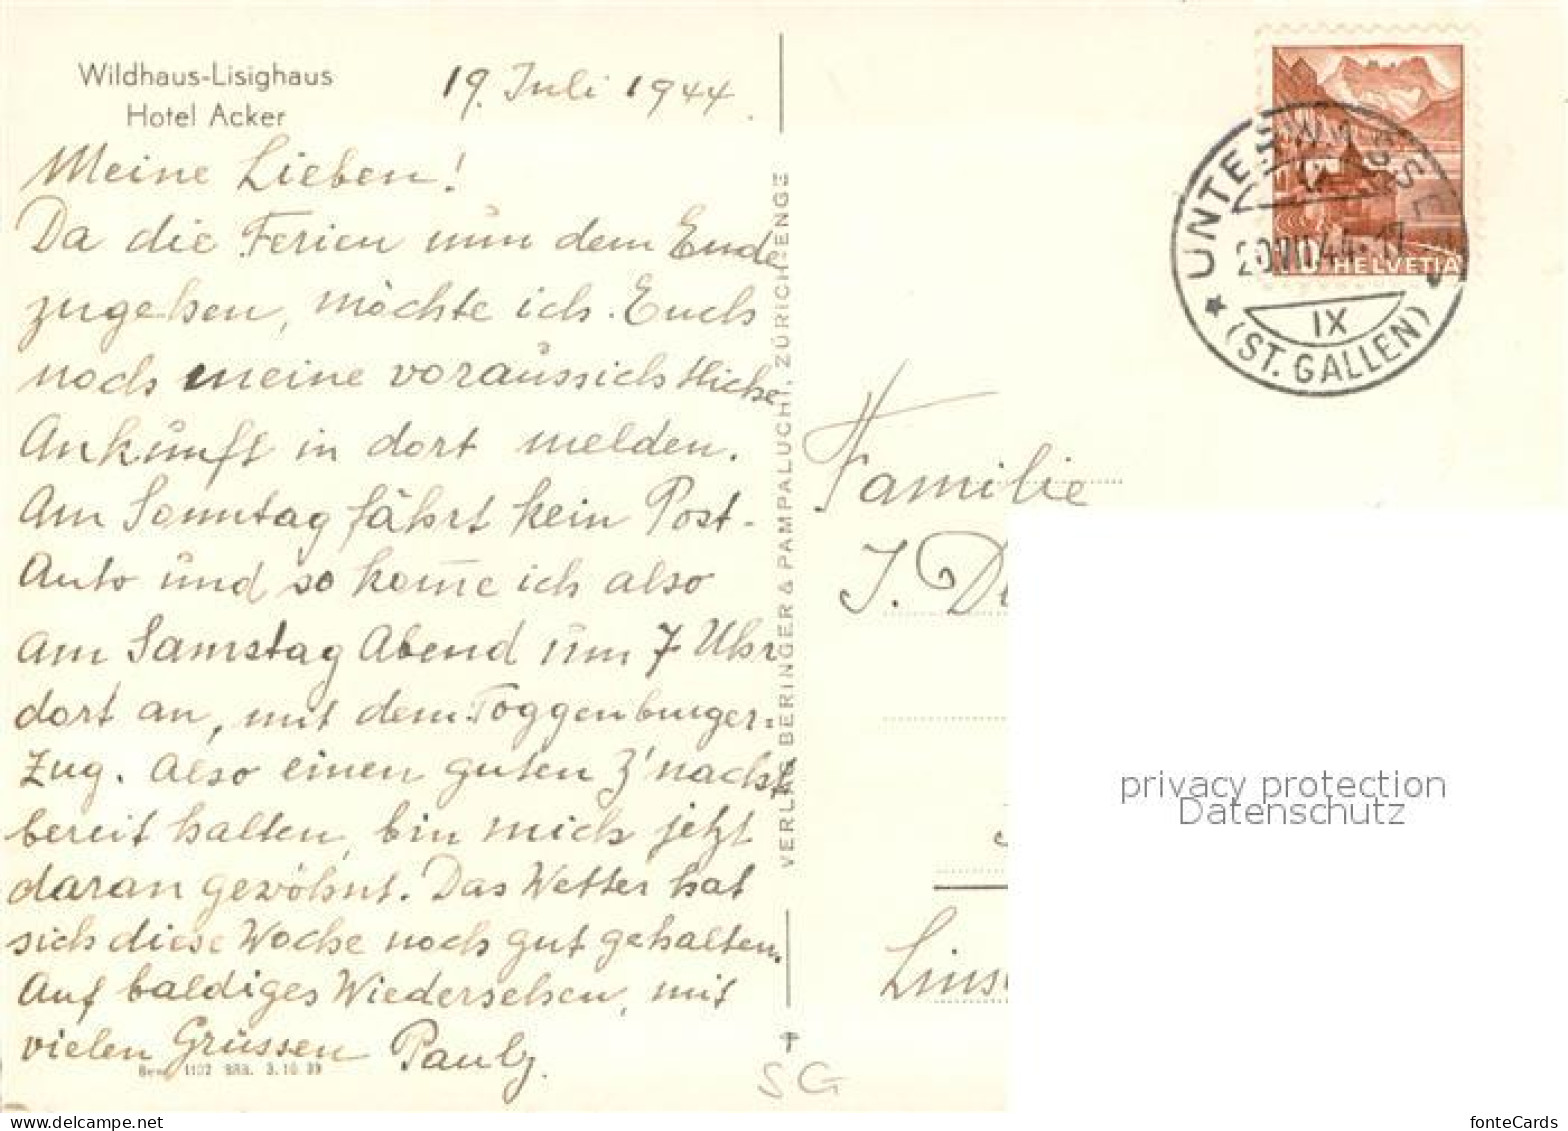 Wildhaus-Lisighaus
Hotel Acker
19. Juli 1944.
Meine Lieben!
Da die Ferien nun dem Ende
zugehen, möchte ich Euch
noch meine voraussichtliche
Ankunft in dort melden.
Am Sonntag fährt kein Post-
Auto und so kom̅e ich also
am Samstag Abend um 7 Uhr
dort an, mit dem Toggenburger-
Zug. Also einen guten Z'nacht
bereit halten, bin mich jetzt
daran gewöhnt. Das Wetter hat
sich diese Woche noch gut gehalten.
Auf baldiges Wiedersehen, mit
vielen Grüssen Pauly.
1102 BRB. 3.10 39
VERLAG BERINGER & PAMPALUCHI, ZÜRICH-ENGE
HELVETIA
UNTERWASSER
20.VII.44.-17
IX
(ST. GALLEN)
Familie
J. D
Lins
SG
privacy protection
Datenschutz
fonteCards